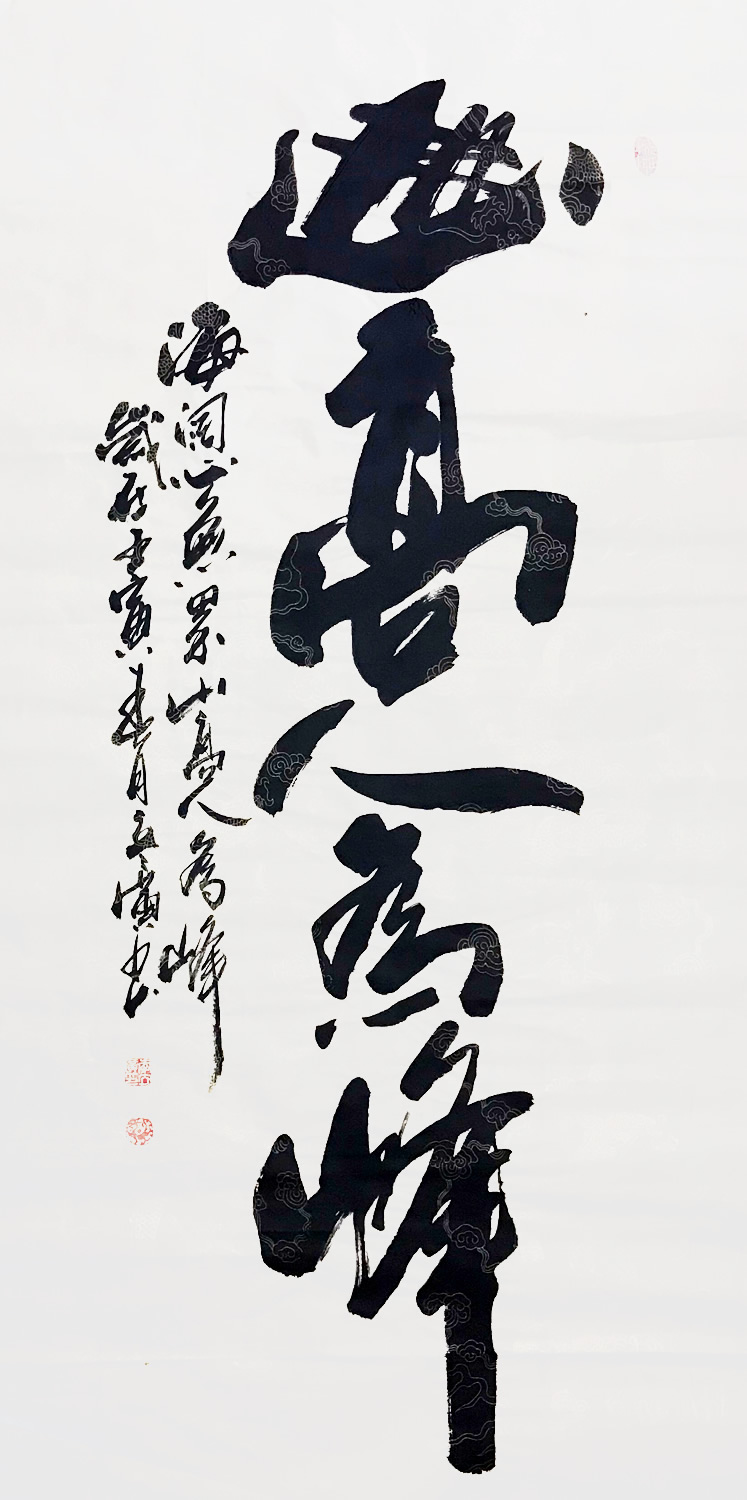 山高人為峰
海阔心無界山高人為峰
歲在壬寅春月书